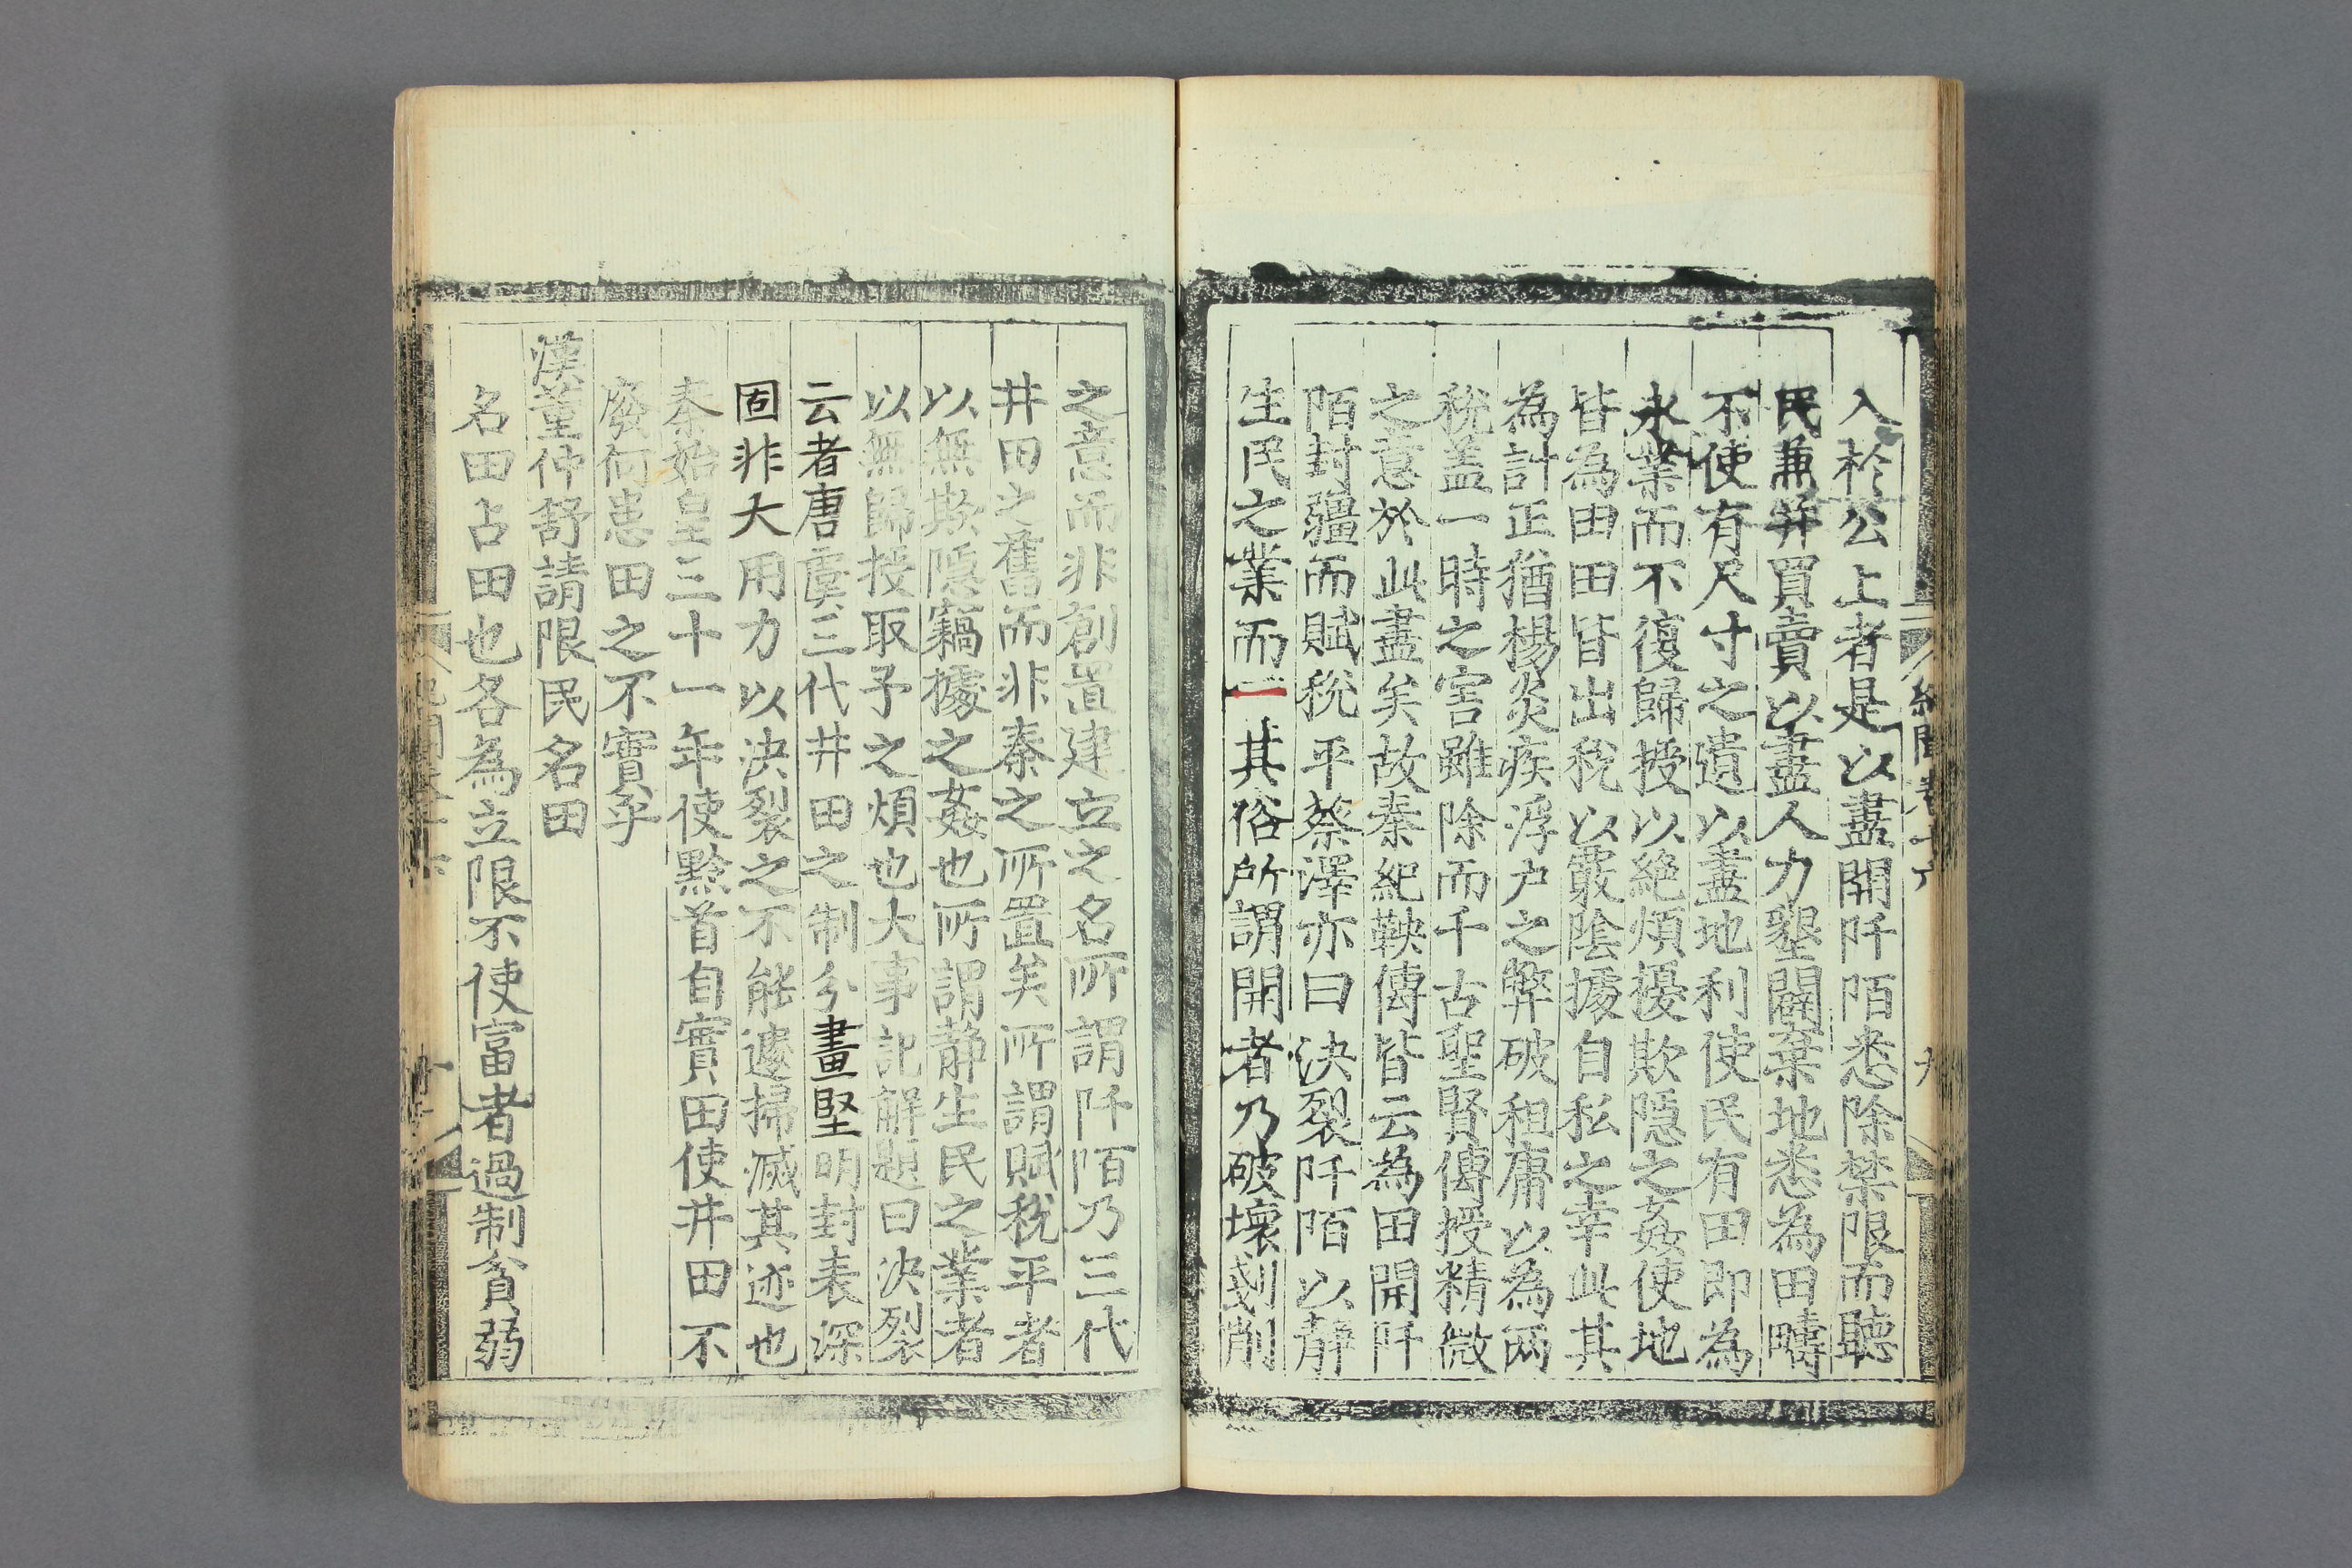 入於公上者是以盡開阡陌悉除禁限而聽
民兼并買賣以盡人力墾闢棄地悉為田疇
不使有尺寸之遺以盡地利使民有田即為
永業而不復歸授以絶煩擾欺隠之姦使地
皆為田田皆出稅以覈隂據自私之幸此其
為計正猶楊炎疾浮户之弊破租庸以為兩
稅盖一時之害雖除而千古聖賢傳授精微
之意於此盡矣故秦紀鞅傳皆云為田開阡
陌封疆而賦稅平蔡澤亦曰決裂阡陌以静
生民之業而一其俗所謂開者乃破壞剗削
之意而非創置建立之名所謂阡陌乃三代
井田之舊而非秦之所置矣所謂賦稅平者
以無欺隠竊據之姦也所謂静生民之業者
以無歸授取予之煩也大事記解題曰決裂
云者唐虞三代井田之制分畫堅明封表深
固非大用力以決裂之不能遽掃滅其迹也
秦始皇三十一年使黔首自實田使井田不
廢何患田之不實乎
漢董仲舒請限民名田
名田占田也各為立限不使富者過制貧弱